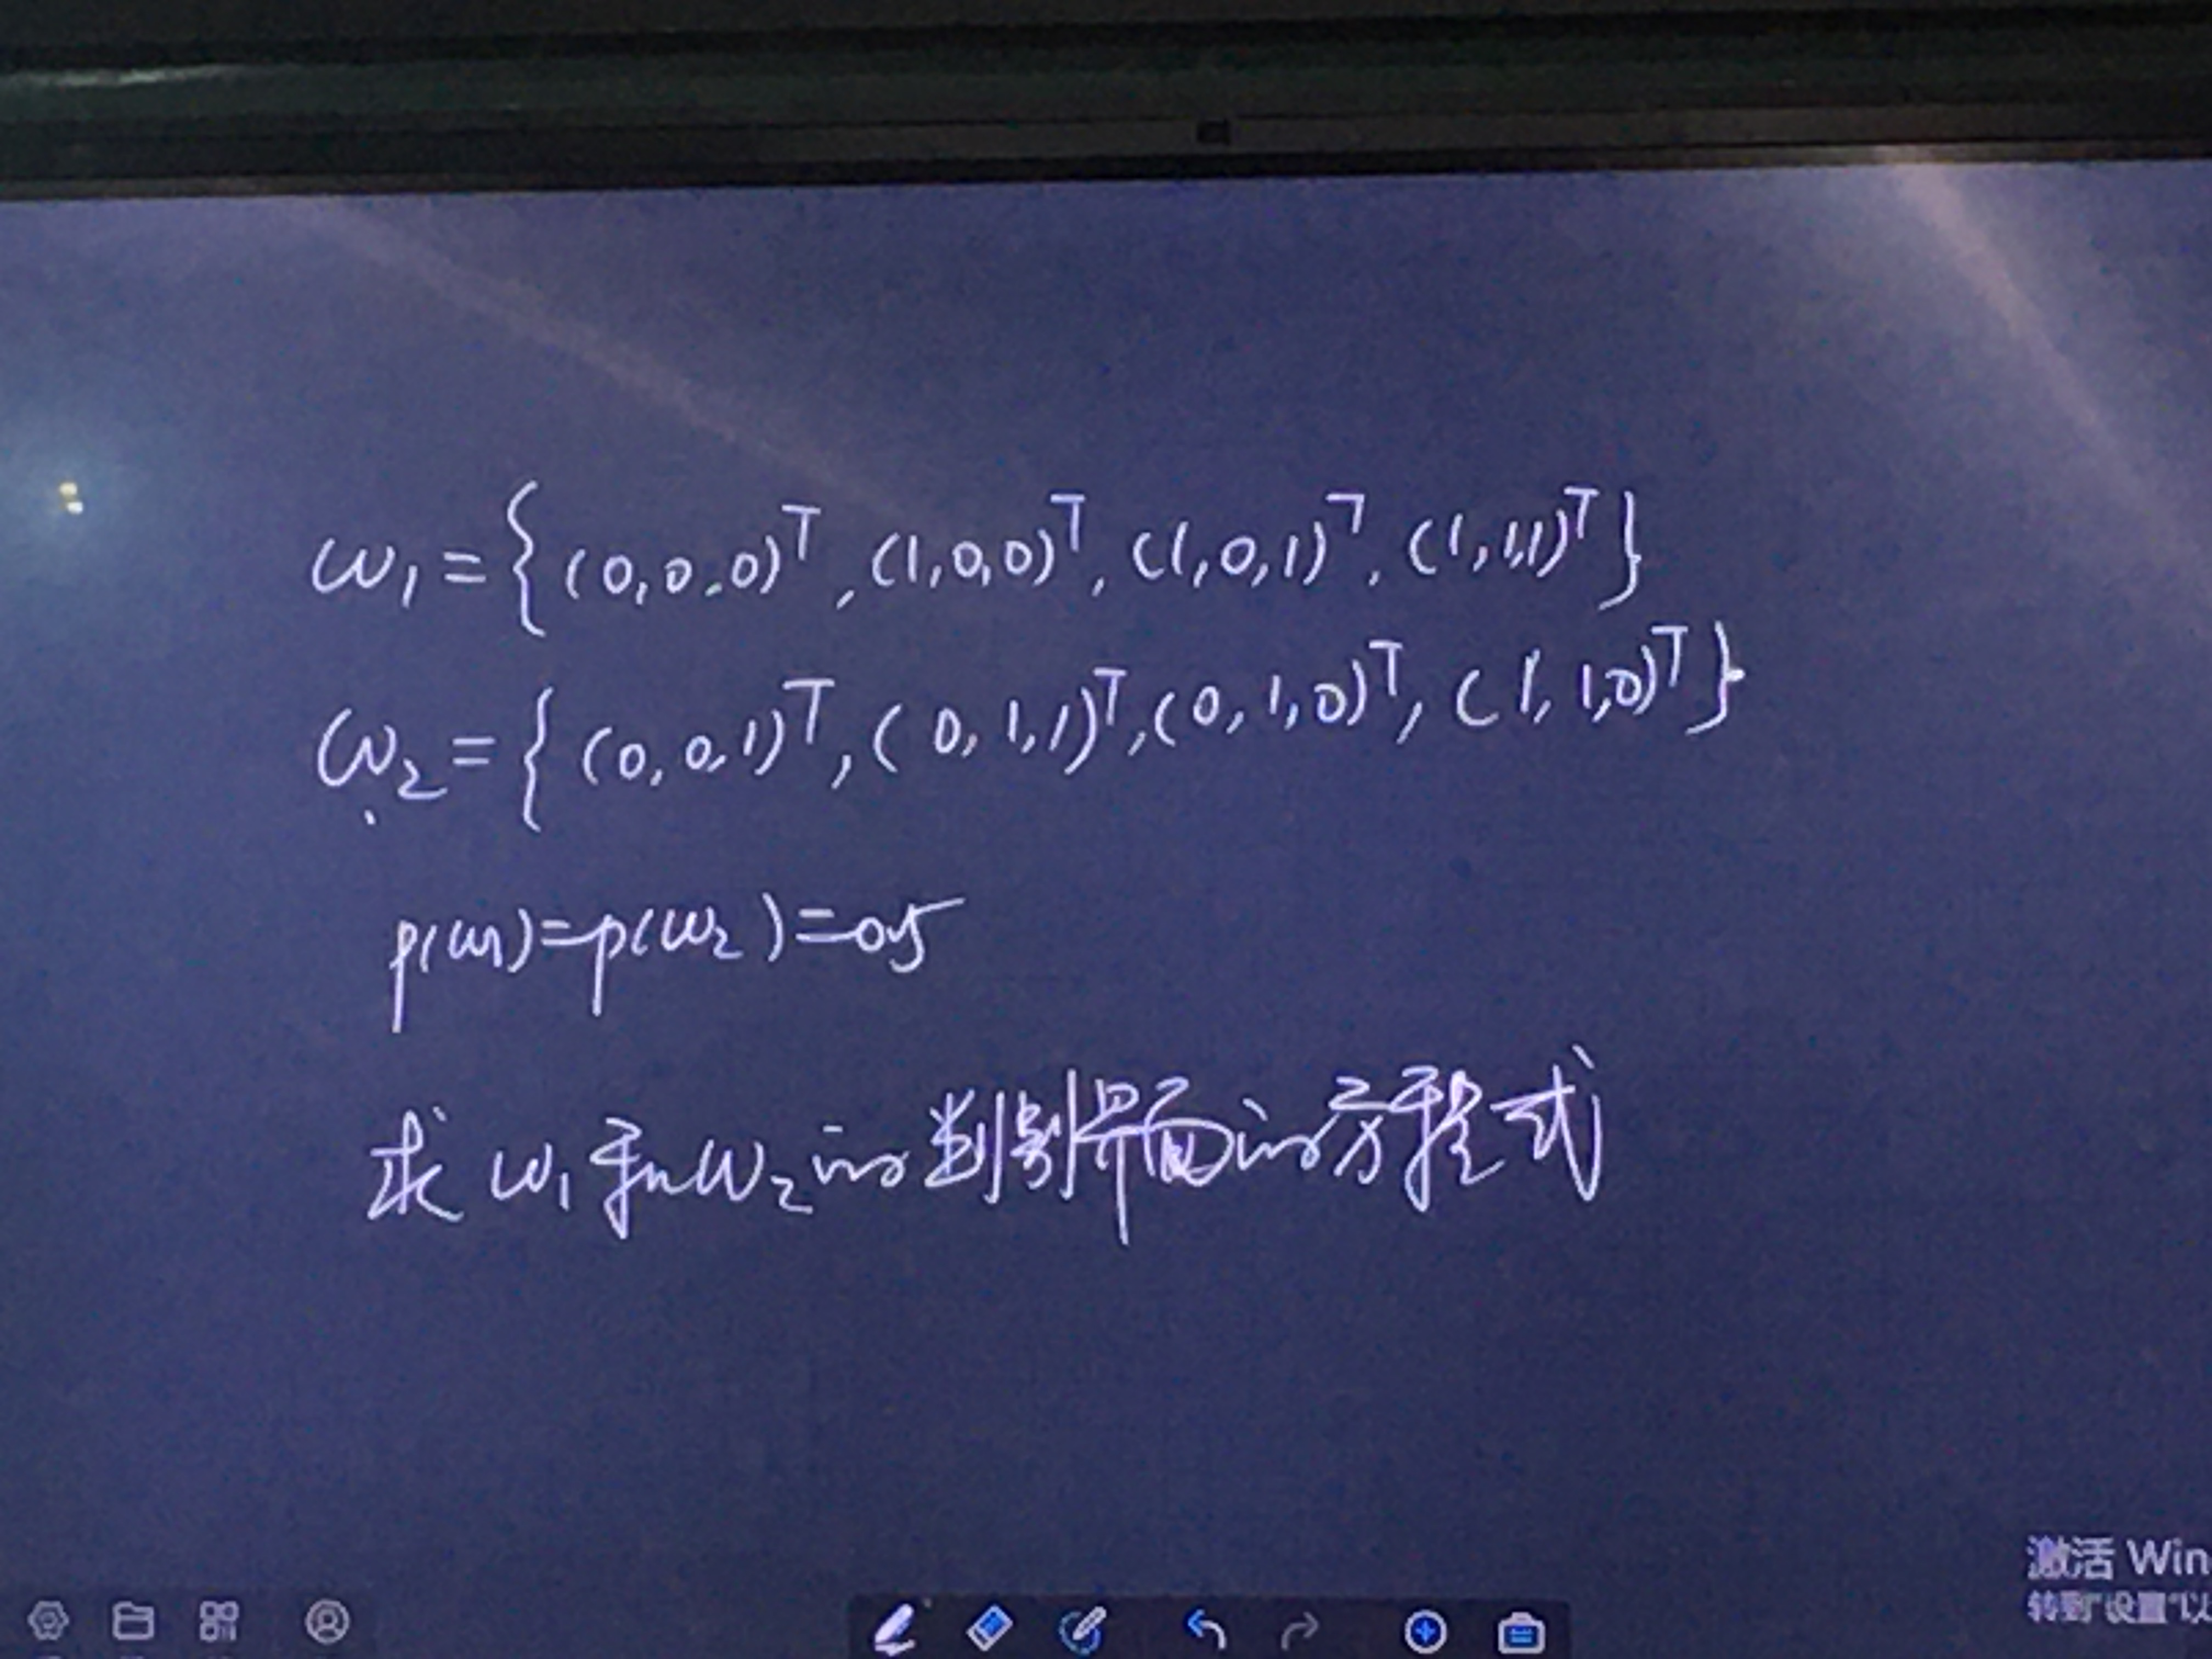 ω₁={(0,0.0)ᵀ,(1,0,0)ᵀ,(1,0,1)ᵀ,(1,1,1)ᵀ}
ω₂={(0,0,1)ᵀ,(0,1,1)ᵀ,(0,1,0)ᵀ,(1,1,0)ᵀ}
p(ω₁)=p(ω₂)=0.5
求ω₁和ω₂的判别界面的方程式
激活 Win
转到"设置"以